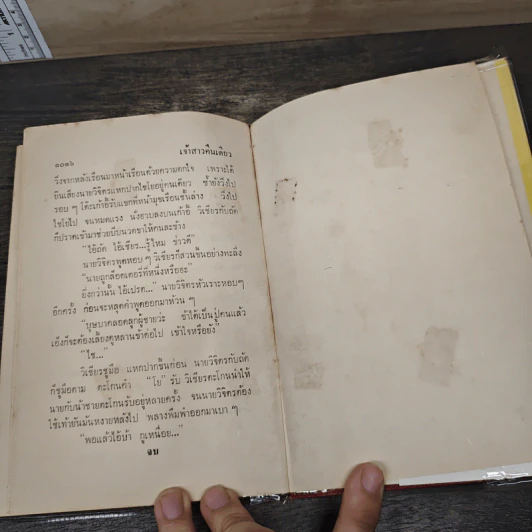 ๑๐๑๖ เจ้าสาวคืนเดียว
วิ่งจากหลังเรือนมาหน้าเรือนด้วยความตกใจ เพราะได้
ยินเสียงนายวิจิตรแหกปากไชโยอยู่คนเดียว ซ้ำยังวิ่งไป
รอบ ๆ โต๊ะเก้าอี้รับแขกที่หน้ามุขเรือนชั้นล่าง วิ่งไป
ไชโยไป จนหมดแรง นั่งฮวบลงบนเก้าอี้ วิเชียรกับถัด
ก็ปราดเข้ามาช่วยบีบนวดขาให้คนละข้าง
“ไอ้ถัด ไอ้เชียร...รู้ไหม ข่าวดี”
นายวิจิตรพูดหอบ ๆ วิเชียรก็สวนขึ้นอย่างทะลึ่ง
“นายถูกล็อตเตอรี่ที่หนึ่งหรือฮะ”
ยิ่งกว่านั้น ไอ้เปรต...” นายวิจิตรหัวเราะหอบๆ
อีกครั้ง ก่อนจะหลุดคำพูดออกมาห้วน ๆ
“บุษบาคลอดลูกผู้ชายว่ะ ข้าได้เป็นปู่คนแล้ว
เอ็งก็จะต้องเลี้ยงดูหลานข้าต่อไป เข้าใจหรือยัง”
“ไช...”
วิเชียรชูมือ แหกปากขึ้นก่อน นายวิจิตรกับถัด
ก็ชูมือตาม ตะโกนคำ “โย” รับ วิเชียรตะโกนนำให้
นายกับน้าชายตะโกนรับอยู่หลายครั้ง จนนายวิจิตรต้อง
ใช้เท้ายันมันหงายหลังไป พลางพึมพำออกมาเบา ๆ
“พอแล้วไอ้บ้า กูเหนื่อย...”
จบ